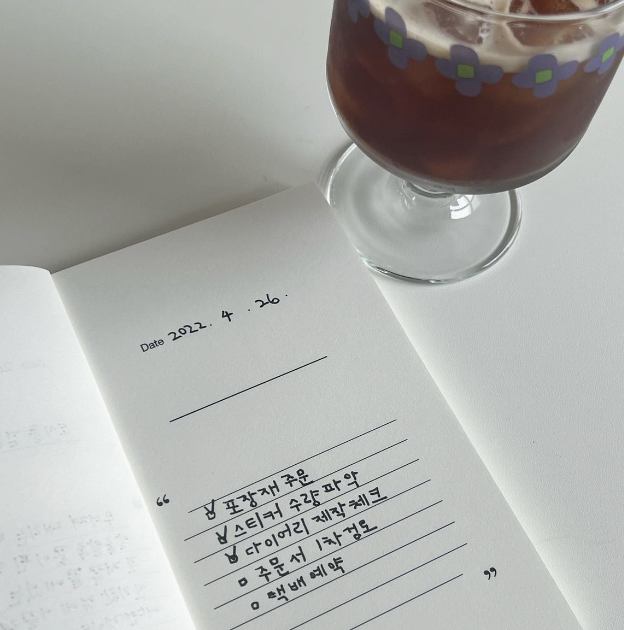 Date 2022. 4 . 26.
“
포장재 주문
스티커 수량 파악
다이어리 제작 체크
주문서 1차 검토
택배 예약
”